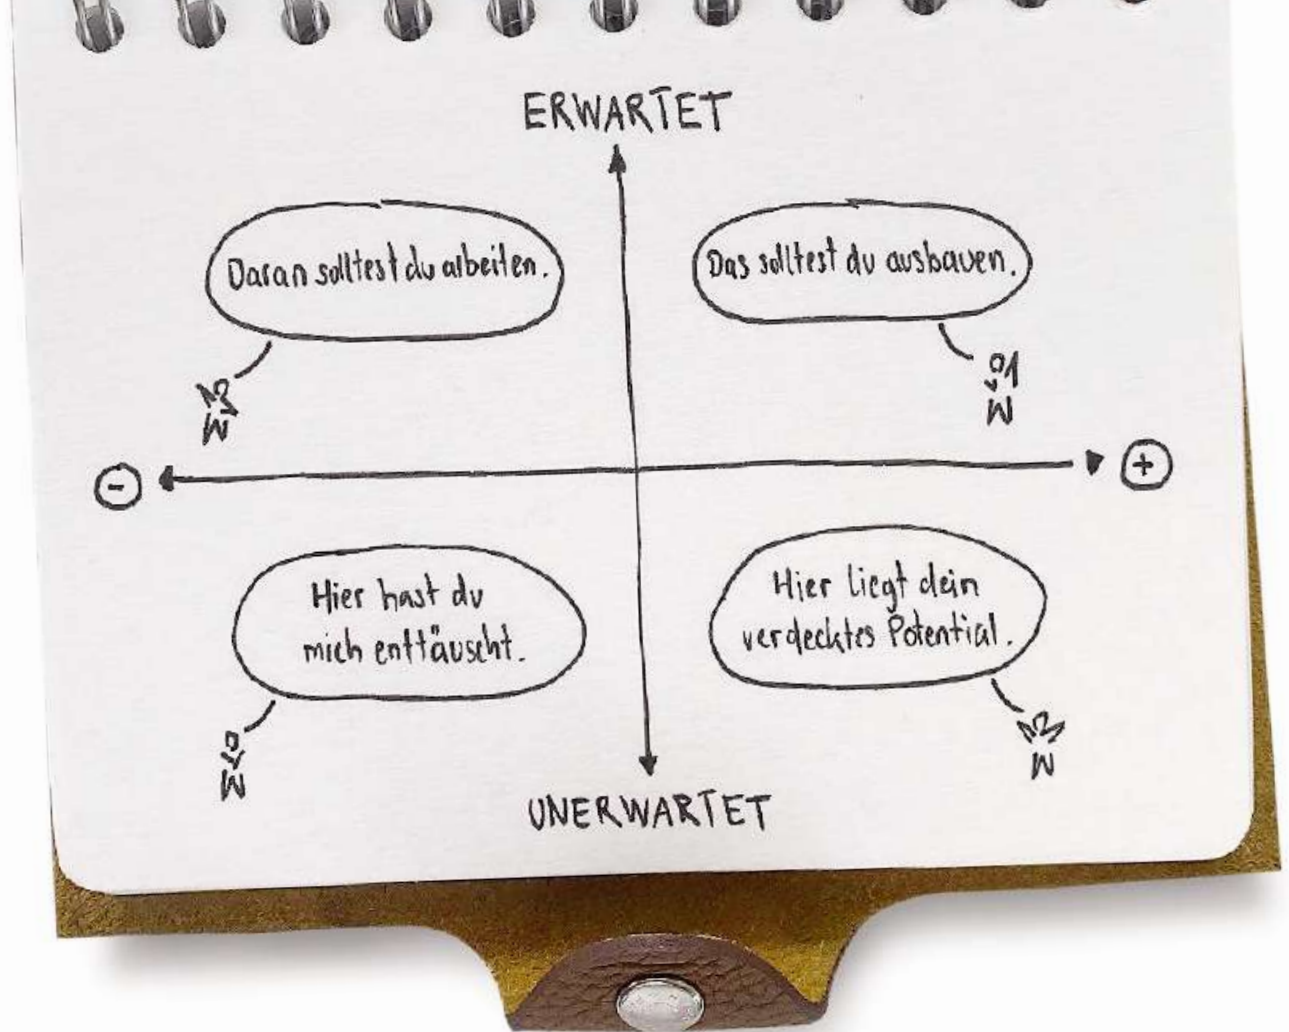 ERWARTET
Daran solltest du arbeiten.
Das solltest du ausbauen.
-
+
Hier hast du
mich enttäuscht.
Hier liegt dein
verdecktes Potential.
UNERWARTET